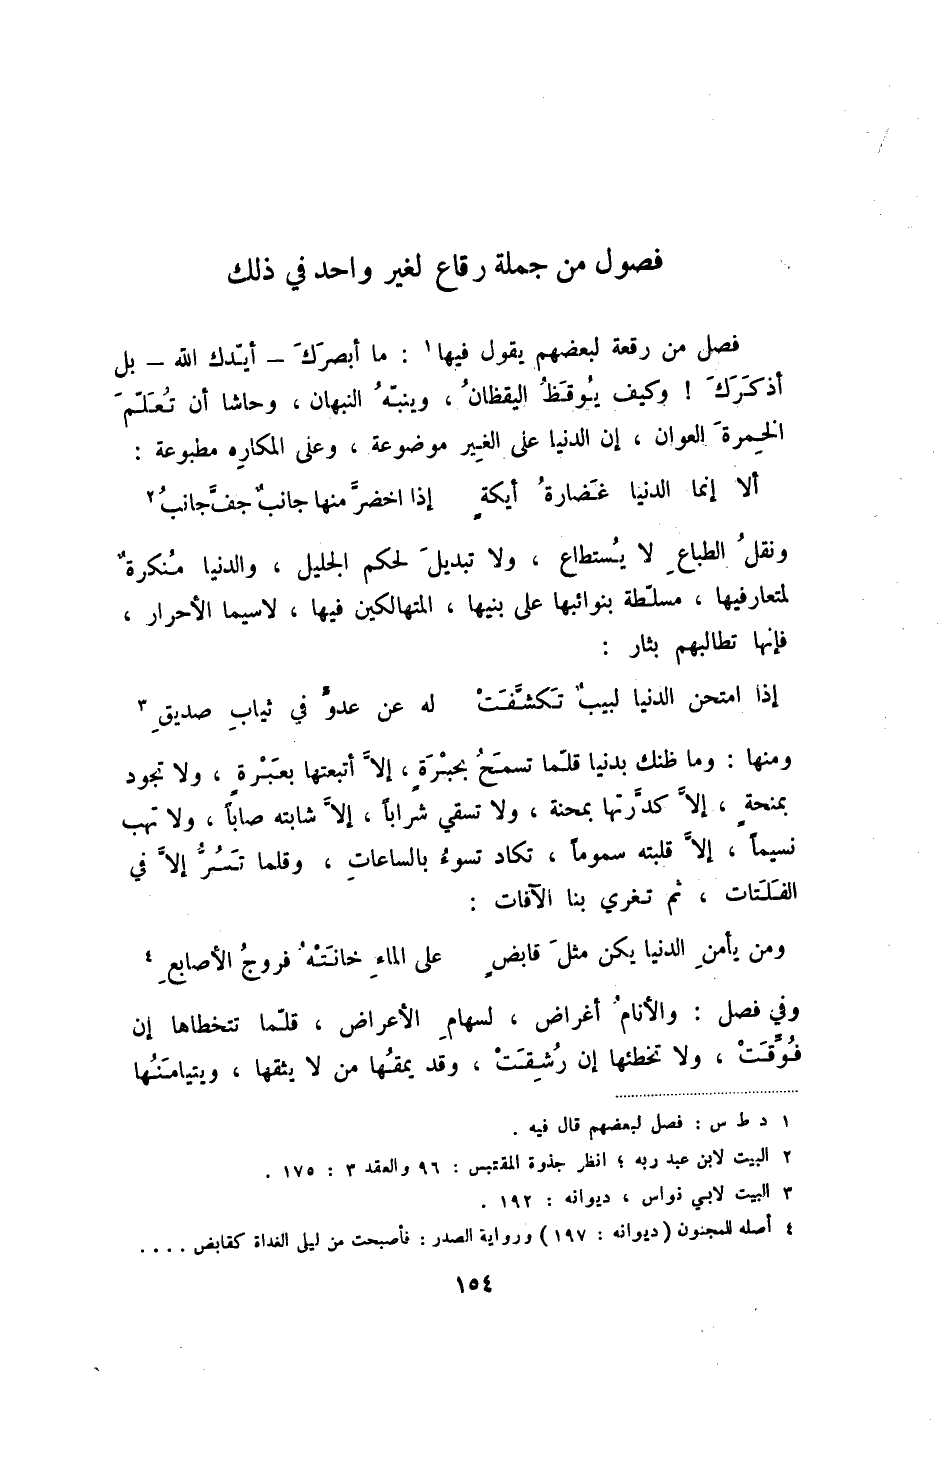 فصول من جملة رقاع لغير واحد في ذلك
فصل من رقعة لبعضهم يقول فيها١ : ما أبصرَكَ – أيّدك الله – بل
أذكَرَكَ ! وكيف يُوقَظُ اليقظانُ ، وينبّهُ النبهان ، وحاشا أن تُعَلّمَ
الخِمرةَ العوان ، إن الدنيا على الغير موضوعة ، وعلى المكارِه مطبوعة :
ألا إنما الدنيا غَضارةُ أيكةٍ إذا اخضرَّ منها جانبٌ جفَّ جانبُ٢
ونقلُ الطباعِ لا يُستطاع ، ولا تبديلَ لحكم الجليل ، والدنيا مُنكرةٌ
لمتعارفيها ، مسلّطة بنوائبها على بنيها ، المتهالكين فيها ، لاسيما الأحرار ،
فإنها تطالبهم بثار :
إذا امتحن الدنيا لبيبٌ تَكشَّفَتْ له عن عدوٍّ في ثيابِ صديقِ٣
ومنها : وما ظنك بدنيا قلّما تسمَحُ بحبْرَةٍ ، إلاَّ أتبعتها بعَبْرةٍ ، ولا تجود
بمنحةٍ ، إلاَّ كدَّرتها بمحنة ، ولا تسقي شراباً ، إلاَّ شابته صاباً ، ولا تهب
نسيماً ، إلاَّ قلبته سموماً ، تكاد تسوءُ بالساعاتِ ، وقلما تَسُرُّ إلاَّ في
الفَلَتات ، ثم تغري بنا الآفات :
ومن يأمنِ الدنيا يكن مثلَ قابضٍ على الماءِ خانَتْهُ فروجُ الأصابعِ٤
وفي فصل : والأنامُ أغراض ، لسهامِ الأعراض ، قلّما تتخطاها إن
فُوِّقَتْ ، ولا تخطئها إن رُشِقَتْ ، وقد يمقُها من لا يثقها ، ويتيامَنُها
١ د ط س : فصل لبعضهم قال فيه .
٢ البيت لابن عبد ربه ؛ انظر جذوة المقتبس : ٩٦ والعقد ٣ : ١٧٥ .
٣ البيت لابي نواس ، ديوانه : ١٩٢ .
٤ أصله للمجنون (ديوانه : ١٩٧) ورواية الصدر : فأصبحت من ليلى الغداة كقابض ....
١٥٤